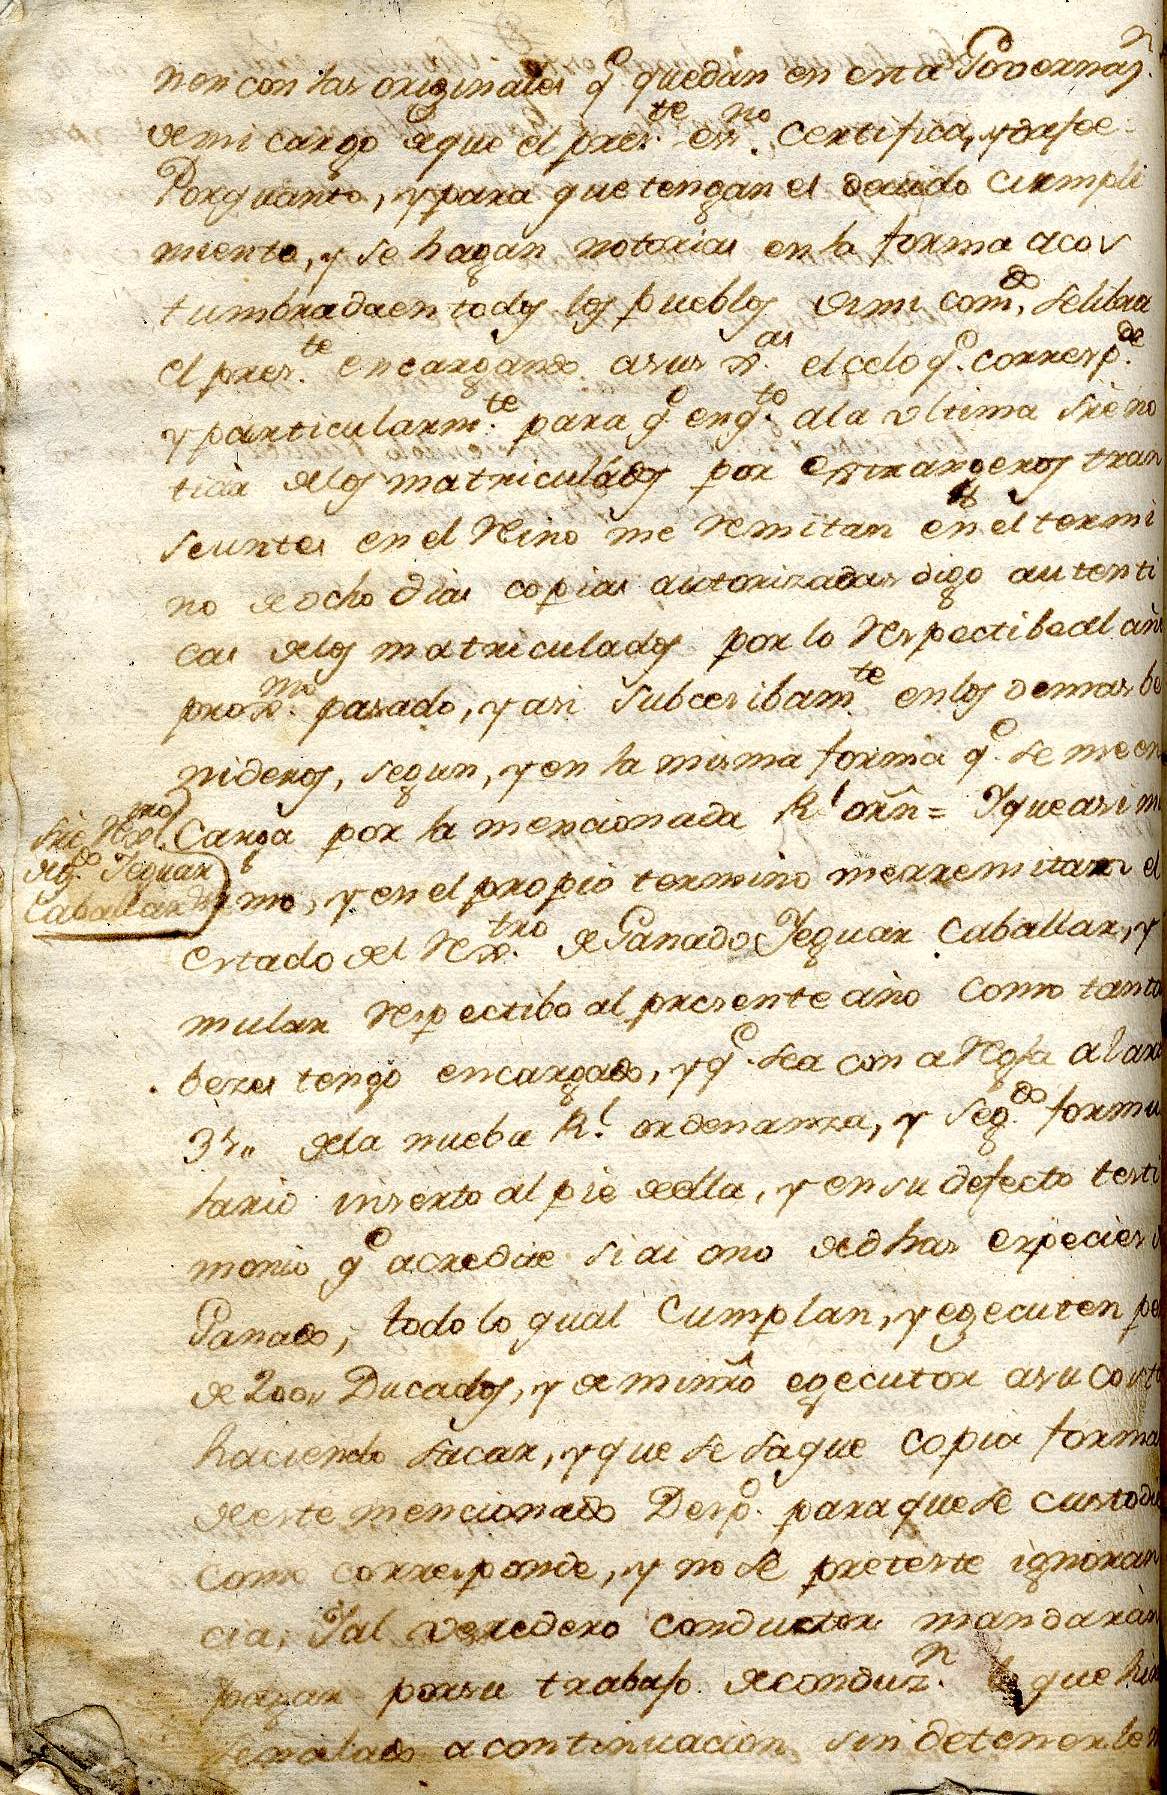 nen con las originales q.e quedan en esta Governaz.n
de mi cargo de que el pres.te es.no Certifica, y da fee =
Porquanto, y para que tengan el devido cumpli
miento, y se hagan notorias en la forma acos
tumbrada en todos los pueblos de mi com.do, se libra
el pres.te encargando a sus R.as el celo q.e corresp.de
y particularm.te para q.e en q.to a la ultima sre no
ticia de los matriculados por estrangeros tran
seuntes en el Reino me remitan en el termi
no de ocho dias copias autorizadas digo autenti
cas de los matriculados por lo respectibo al año
prox.mo pasado, y asi subcesibam.te en los demas be
nideros, segun, y en la misma forma q.e se me en
Carga por la mencionada R.l orñ = Y que asi m
sre Rex.tro
de g.do Yeguar
Caballar
mo, y en el propio termino me rremitan el
estado del Rex.tro de Ganado Yeguar Caballar, y
mular respectibo al presente año como tanta
bezes tengo encargado, y q.e sea con aRegla al ar
35,, de la nueba R.l ordenanza, y seg.do formu
lario inserto al pie de ella, y en su defecto testi
monio q.e acredite si ai o no de dhas especies
Ganado, todo lo qual Cumplan, y egecuten pe
de 200,, Ducados, y de minrô egecutor a su cost
haciendo sacar, y que se saque copia forma
de este mencionado Desp.o para que se custodi
como corresponde, y no se preteste ignoran
cia, Y al veredero conductor mandaràn
pagar por su trabajo de conduz.n lo que hir
señalado a continuacion sin detenerle